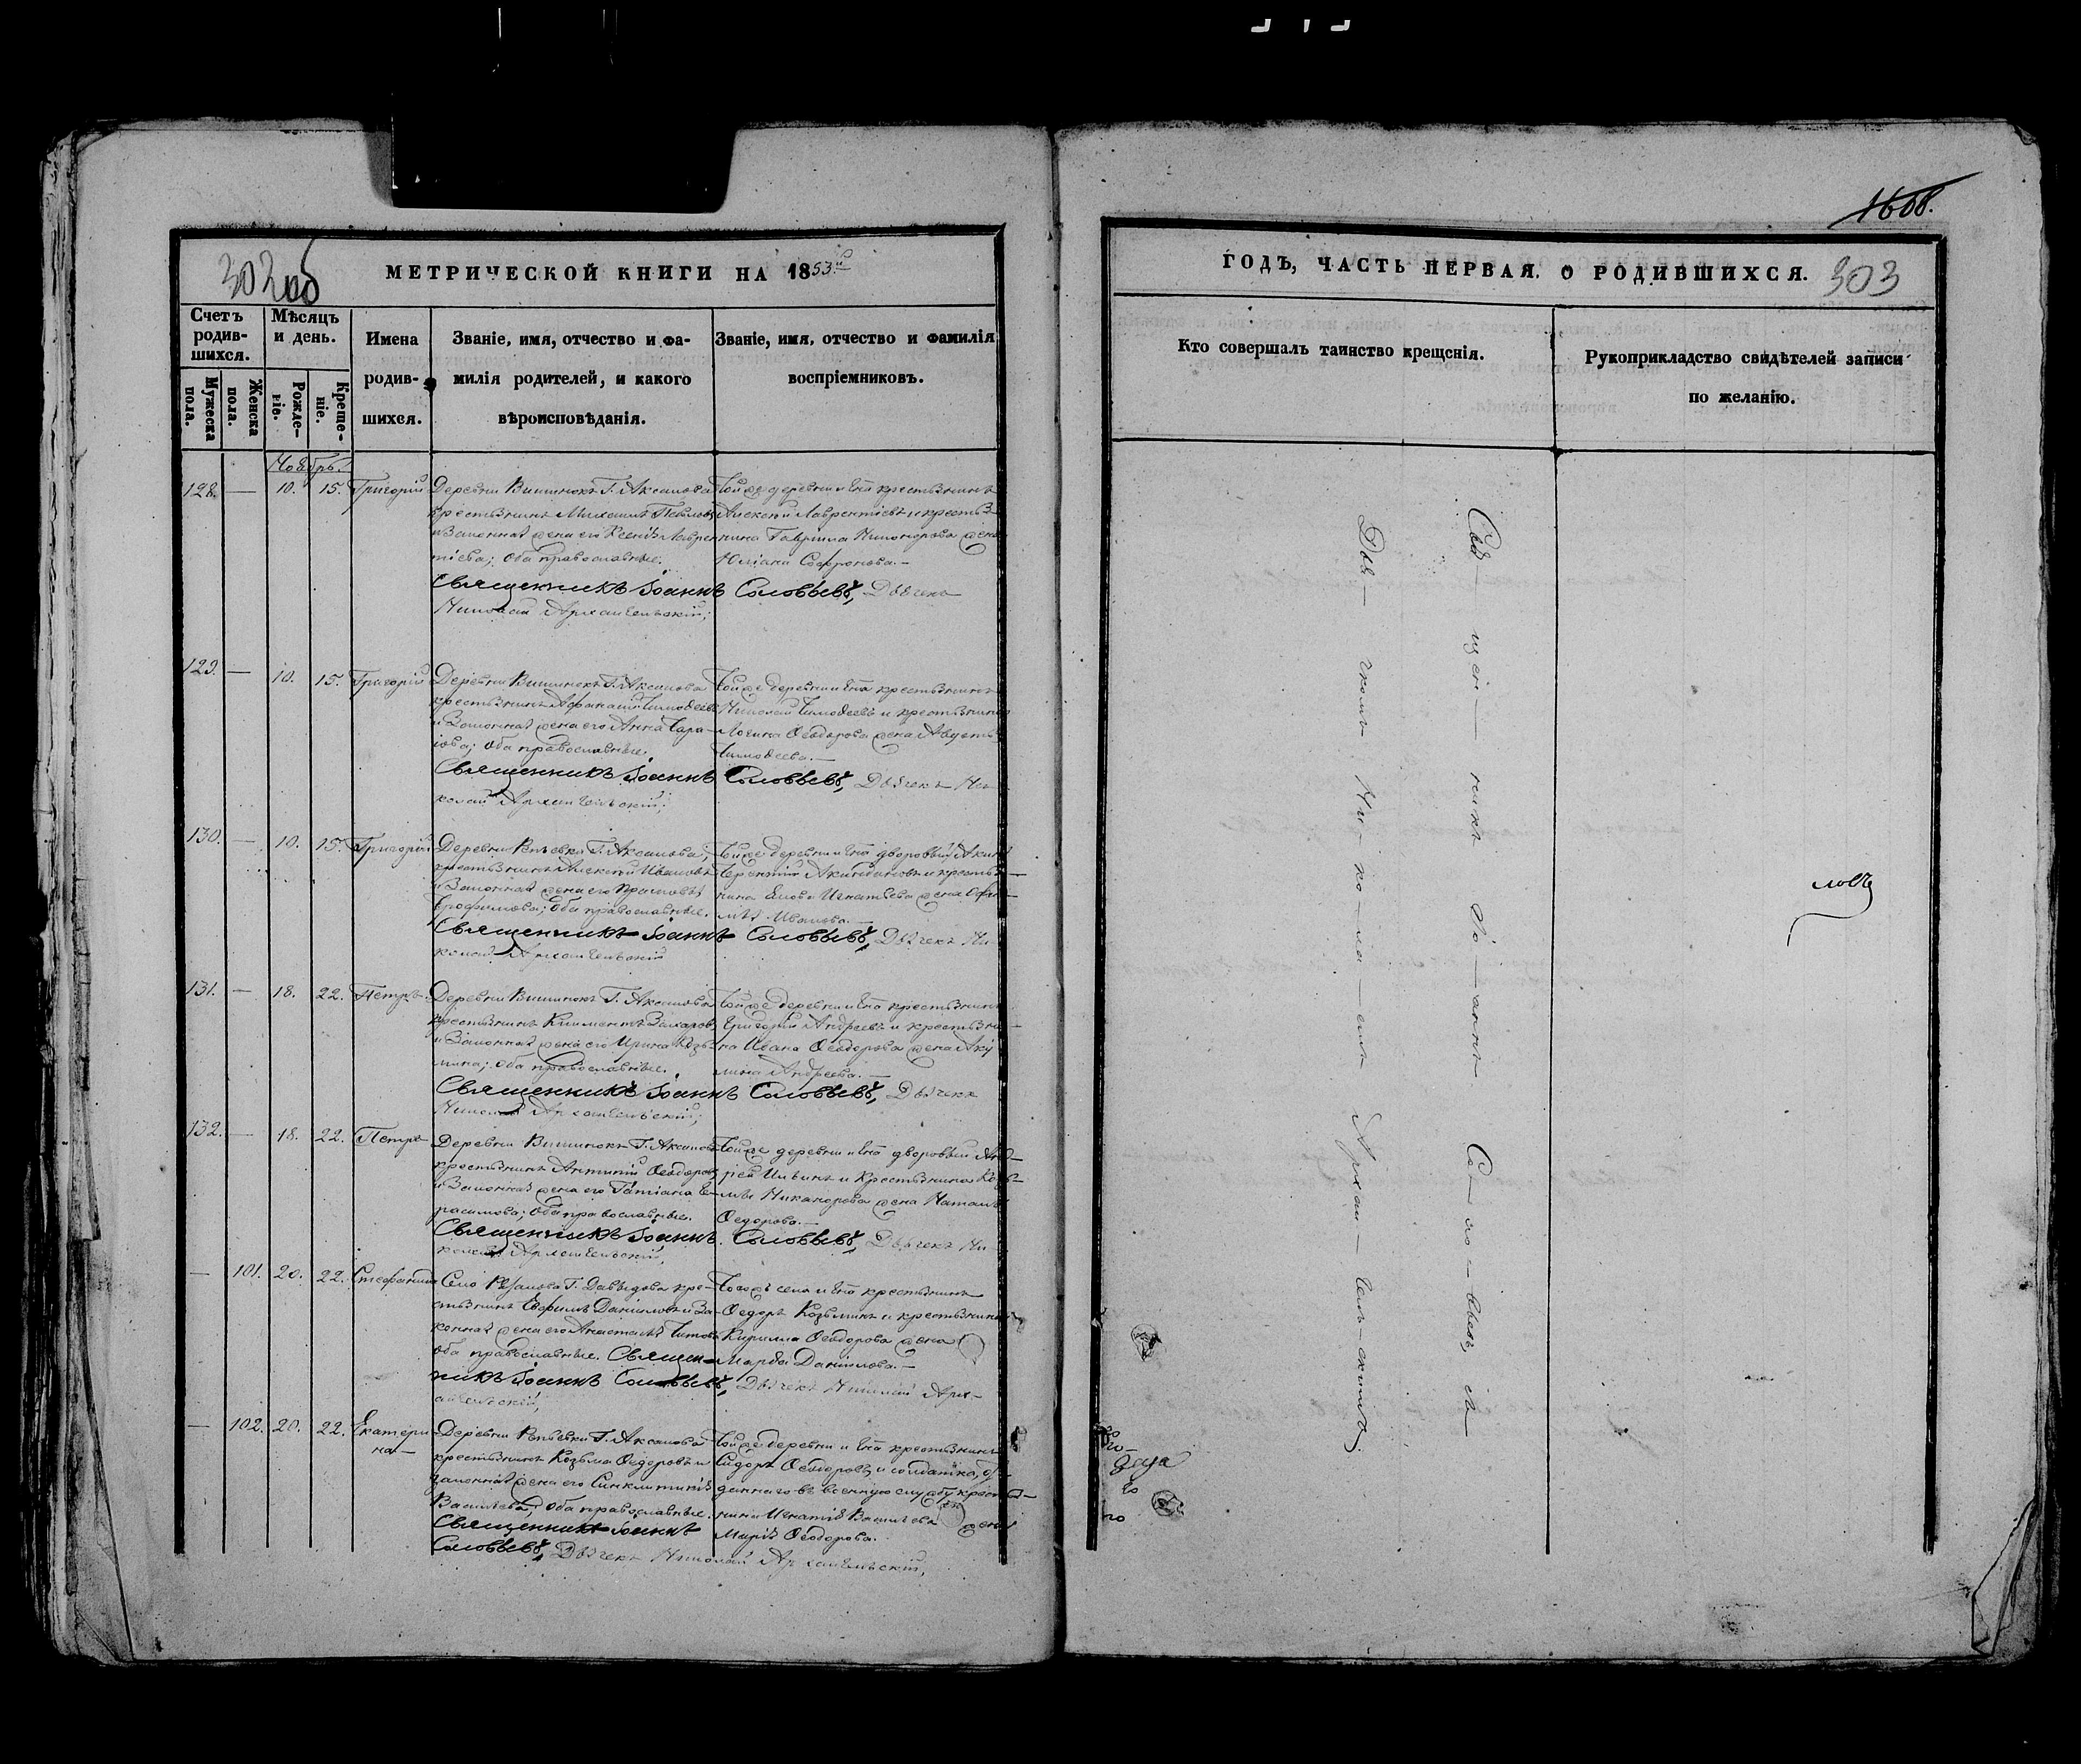 302 об
МЕТРИЧЕСКОЙ КНИГИ НА 1853й
Счетъ родив-шихся.
Мѣсяцъ и день.
Имена родив-шихся.
Званіе, имя, отчество и фа-
милія родителей, и какого
вѣроисповѣданія.
Званіе, имя, отчество и фамилія
воспріемниковъ.
Мужеска пола.
Женска пола.
Рожде-ніе.
Креще-ніе.
Ноябрь.
128. — 10. 15. Григорій
Деревни Вишнокъ Г. Аксакова
крестьянинъ Михаилъ Павловъ
и Законная жена его Ксенія Лаврен-
тіева; оба православные.
Той же деревни и Гна крестьянинъ
Алексѣй Лаврентіевъ и крестья-
нина Гавріила Никонорова жена
Юліанія Софронова. —
Священникъ Іоаннъ Соловьевъ, Дьячекъ
Николай Архангельскій;
129. — 10. 15. Григорій
Деревни Вишнокъ Г. Аксакова
крестьянинъ Афанасій Тимофеевъ
и Законная жена его Анна Тара-
сова; оба православные.
Той же деревни и Гна крестьянинъ
Николай Тимофеевъ и крестьянина
Логина Феодорова жена Авдотья
Тимофеева. —
Священникъ Іоаннъ Соловьевъ, Дьячекъ Ни-
колай Архангельскій;
130. — 10. 15. Григорій
Деревни Репьевки Г. Аксакова,
крестьянинъ Алексѣй Ивановъ
и Законная жена его Прасковья
Трофимова; Оба православные.
Той же деревни и Гна дворовый
Терентій Акиндиновъ и крестья-
нина Игнатьева жена
Иванова. —
Священникъ Іоаннъ Соловьевъ, Дьячекъ Ни-
колай Архангельскій
131. — 18. 22. Петръ.
Деревни Вишнокъ Г. Аксакова
крестьянинъ Климентъ Захаровъ
и Законная жена его Ирина Козь-
мина; оба православные.
Той же деревни и Гна крестьянинъ
Григорій Андреевъ и крестьяни-
на Ивана Феодорова жена Аку
лина Андреева. —
Священникъ Іоаннъ Соловьевъ, Дьячекъ
Николай Архангельскій;
132. — 18. 22. Петръ
Деревни Вишнокъ Г. Аксакова
крестьянинъ Антипій Феодоровъ
и Законная жена его Татіана Ге-
расимова; оба православные.
Той же деревни и Гна дворовый Анд-
рей Ильинъ и Крестьянина Козь-
мы Никанорова жена Наталья
Федорова. —
Священникъ Іоаннъ Соловьевъ, Дьячекъ Ни-
колай Архангельскій,
— 101. 20. 22. Стефанида
Село Г. Давыдова кре-
стьянинъ Евфимъ Даниловъ и За-
конная жена его Анастасія Титова
оба православные. Священ-
Тогожъ села и Гна крестьянинъ
Федоръ Козьминъ и крестьянина
Кирилла Феодорова жена
Марфа Данілова. —
никъ Іоаннъ Соловьевъ, Дьячекъ Николай Арх-
ангельскій,
— 102. 20. 22. Екатери-
на —
Деревни Репьевки Г. Аксакова
крестьянинъ Козьма Федоровъ и
законная жена его Синклитикія
Васильева, оба православные.
Той же деревни и Гна крестьянинъ
Сидоръ Феодоровъ и солдатка, от-
даннаго въ военную службу крестья-
нина Игнатія Васильева жена
Марія Феодорова.
Священникъ Іоаннъ
Соловьевъ, Дьячекъ Николай Архангельскій,
1668.
ГОДЪ, ЧАСТЬ ПЕРВАЯ, О РОДИВШИХСЯ. 303
Кто совершалъ таинство крещенія.
Рукоприкладство свидѣтелей записи
по желанію.
Свя — щен — никъ Іо — аннъ Со — ло — вьевъ, съ
Дья — чкомъ Ни — ко — ла — емъ Архан — гель — скимъ;
ловъ